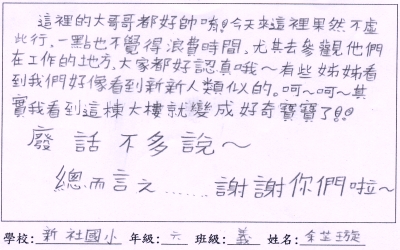 這裡的大哥哥都好帥唷!!今天來這裡果然不虛
此行。一點也不覺得浪費時間,尤其去參觀他們
在工作的地方,大家都好認真哦~有些姊姊看
到我們好像看到新新人類似的。呵~呵~其
實我看到這棟大樓就變成好奇寶寶了!!
廢話不多說~
總而言之......謝謝你們啦~
學校: 新社國小 年級: 六 班級: 義 姓名: 余芷璇